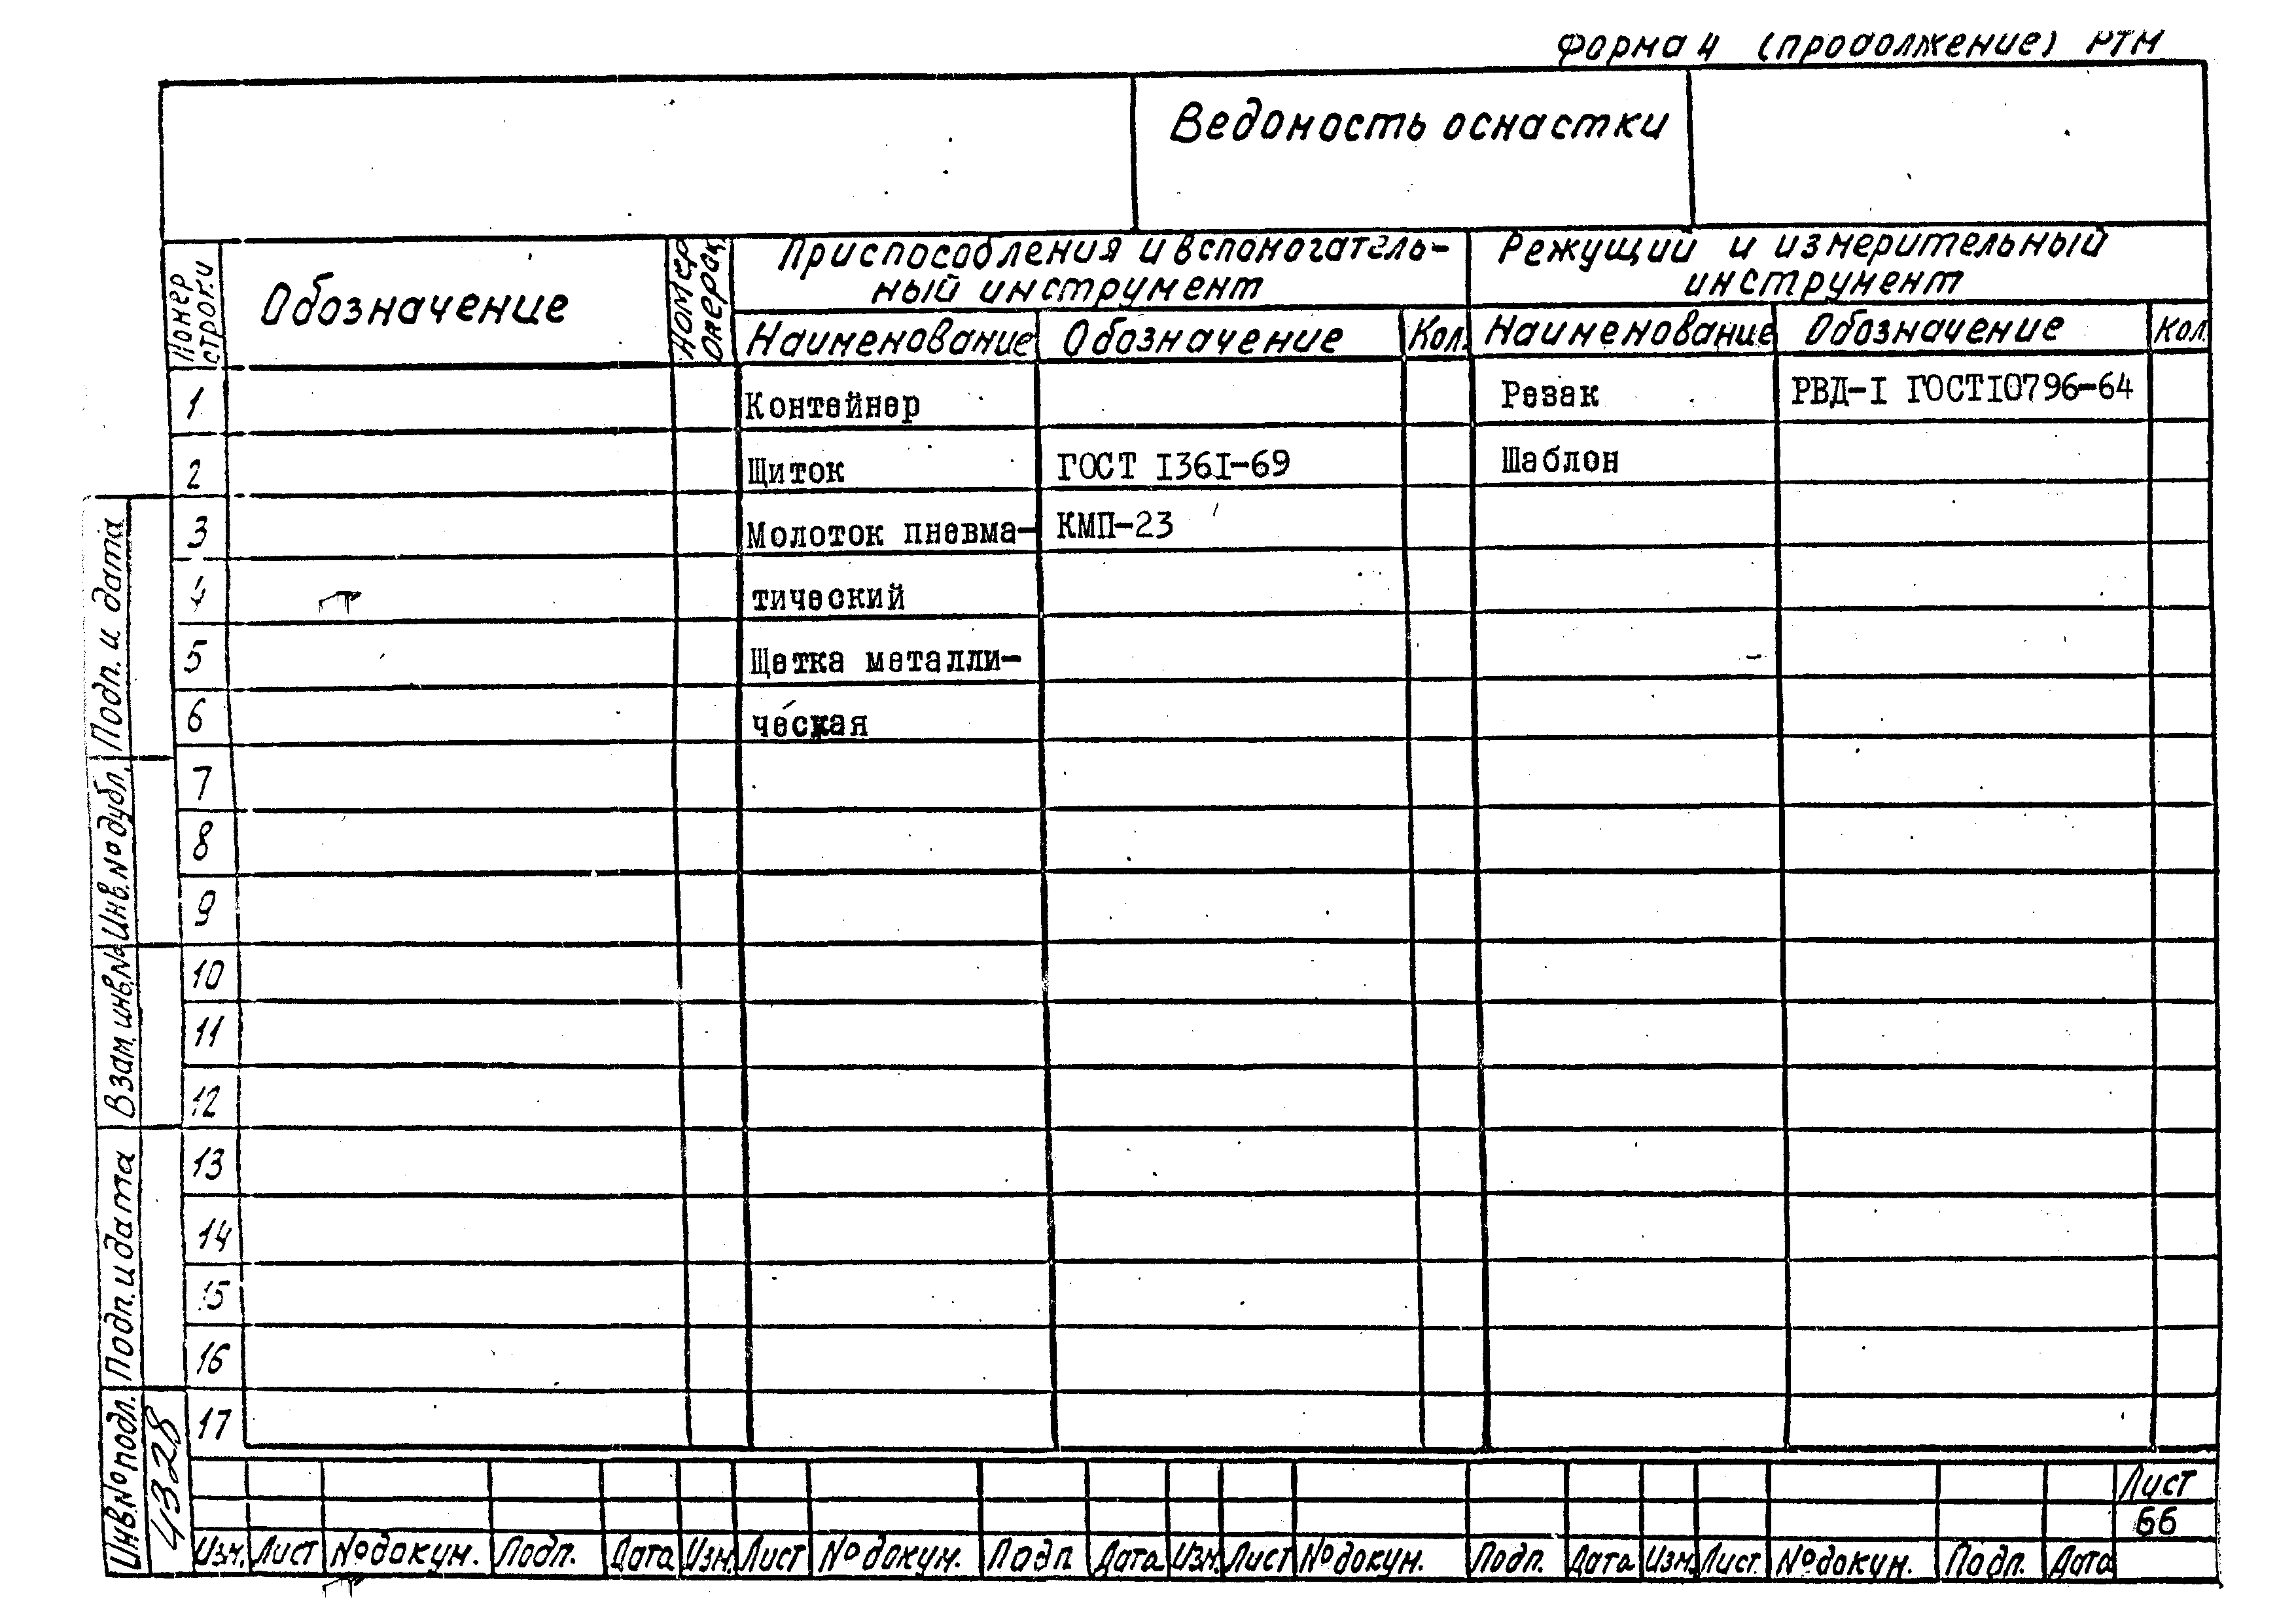 Форма 4 (продолжение) РТМ
Ведомость оснастки
Номер строки
Обозначение
Номер операц.
Приспособления и вспомогатель-
ный инструмент
Режущий и измерительный
инструмент
Наименование Обозначение Кол. Наименование Обозначение Кол.
1 Контейнер Резак РВД-I ГОСТ10796-64
2 Щиток ГОСТ I36I-69 Шаблон
3 Молоток пневма- КМП-23
4 тический
5 Щетка металли-
6 ческая
7
8
9
10
11
12
13
14
15
16
17
Подп. и дата
Инв. № дубл.
Взам. инв. №
Подп. и дата
Инв. № подл.
4328
Лист
66
Изм. Лист № докум. Подп. Дата Изм. Лист № докум. Подп Дата Изм. Лист № докум. Подп. Дата Изм. Лист № докум. Подп. Дата